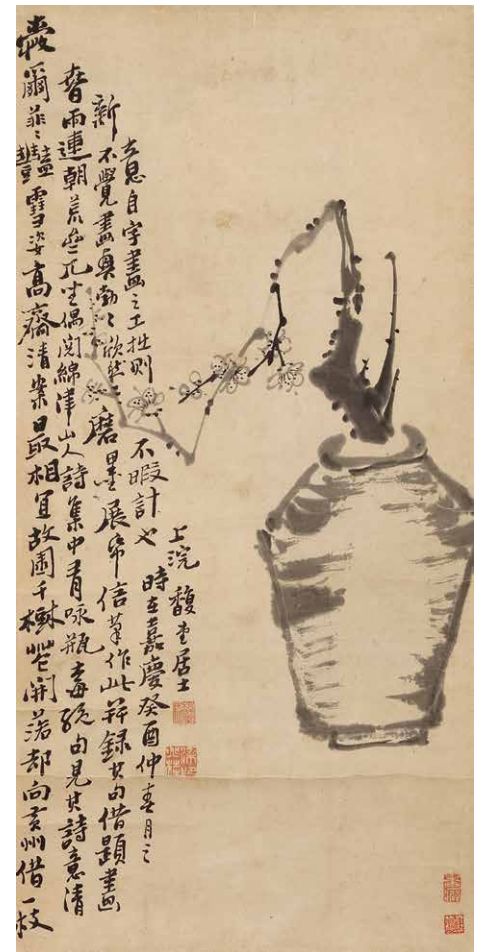 愛爾菲〻艷雪姿高齋清案最相宜故園千樹花開落都向黃州借一枝
春雨連朝荒齋兀坐偶閱綿津山人詩集中有咏瓶梅絕句見其詩意清
新不覺畫興勃〻欣然磨墨展帋信筆作此并錄其句借題畫
自字畫之工拙則不暇計也時在嘉慶癸酉仲春月之
上浣馥堂居士